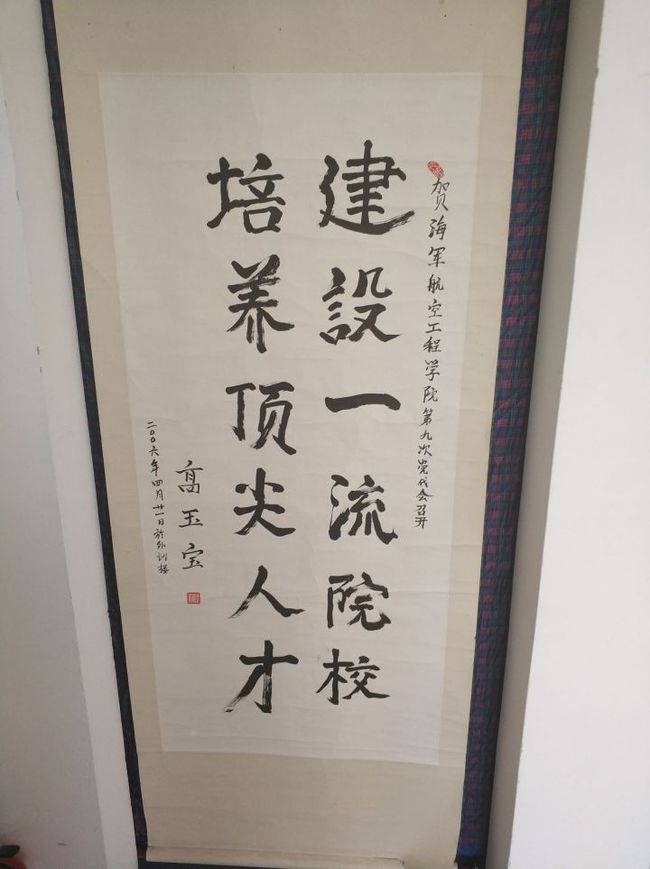 贺海军航空工程学院第九次党代会召开
建設一流院校
培养顶尖人才
高玉宝
二〇〇六年四月廿一日於外训楼